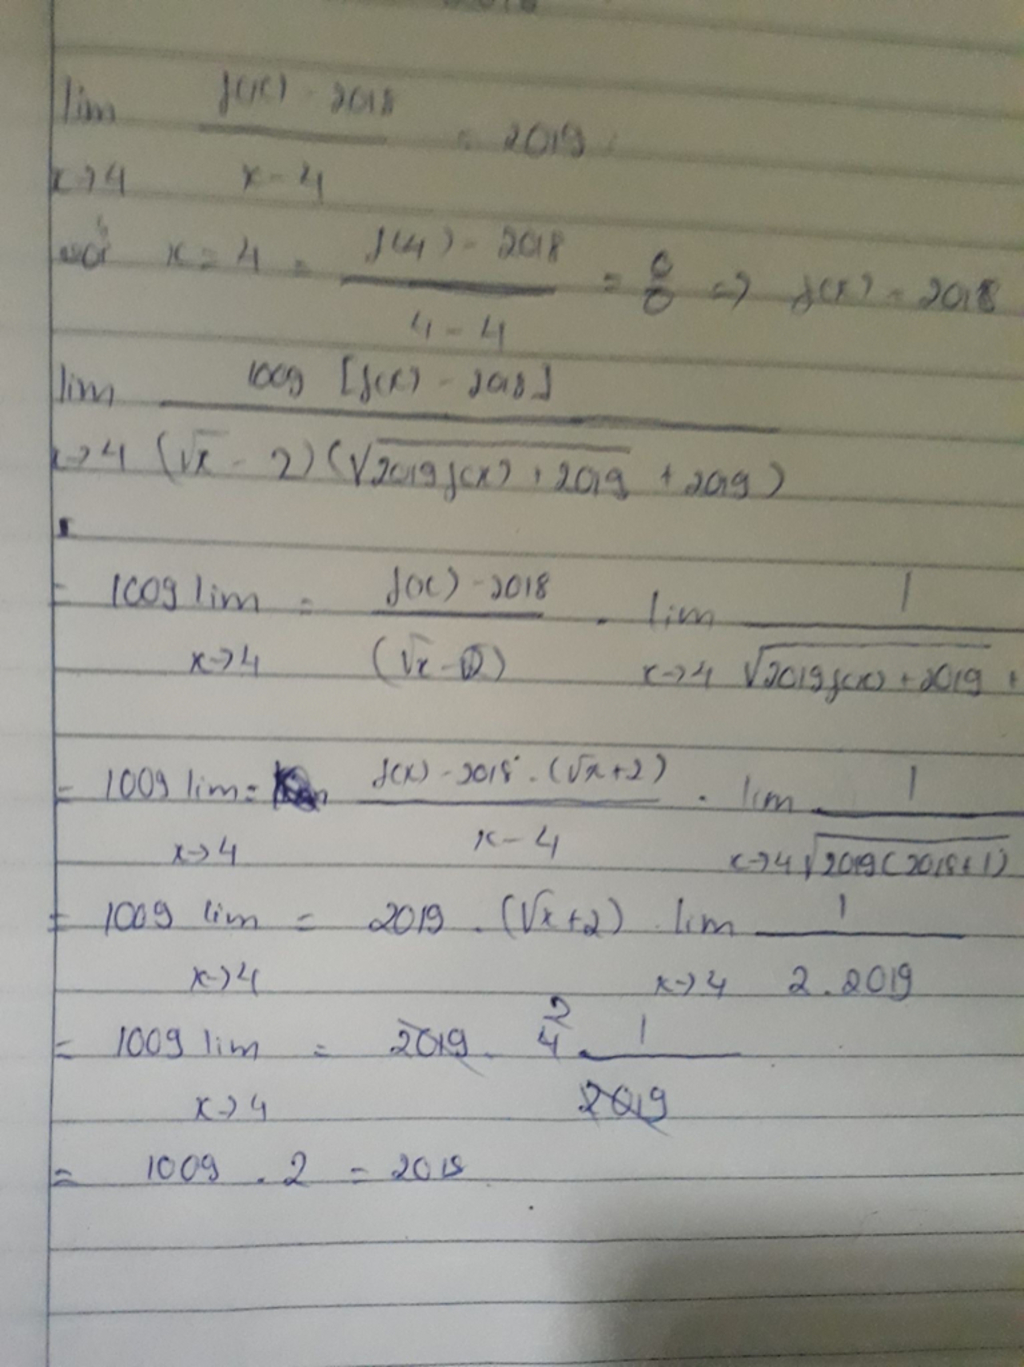 lim f(x) - 2018 / x - 4 = 2019
x→4
với x = 4 = f(4) - 2018 / 4 - 4 = 0/0 => f(x) = 2018
lim 1009 [f(x) - 2018]
x→4 (√x - 2)(√2019f(x) + 2019 + 2019)
= 1009 lim = f(x) - 2018 / (√x - 2) . lim 1
x→4 x→4 √2019f(x) + 2019 +
= 1009 lim = f(x) - 2018 . (√x + 2) / x - 4 . lim 1
x→4 x→4 √2019(2018+1)
= 1009 lim = 2019 . (√x + 2) . lim 1
x→4 x→4 2.2019
= 1009 lim = 2019 . 4 2 . 1
x→4 2019
= 1009 . 2 = 2018